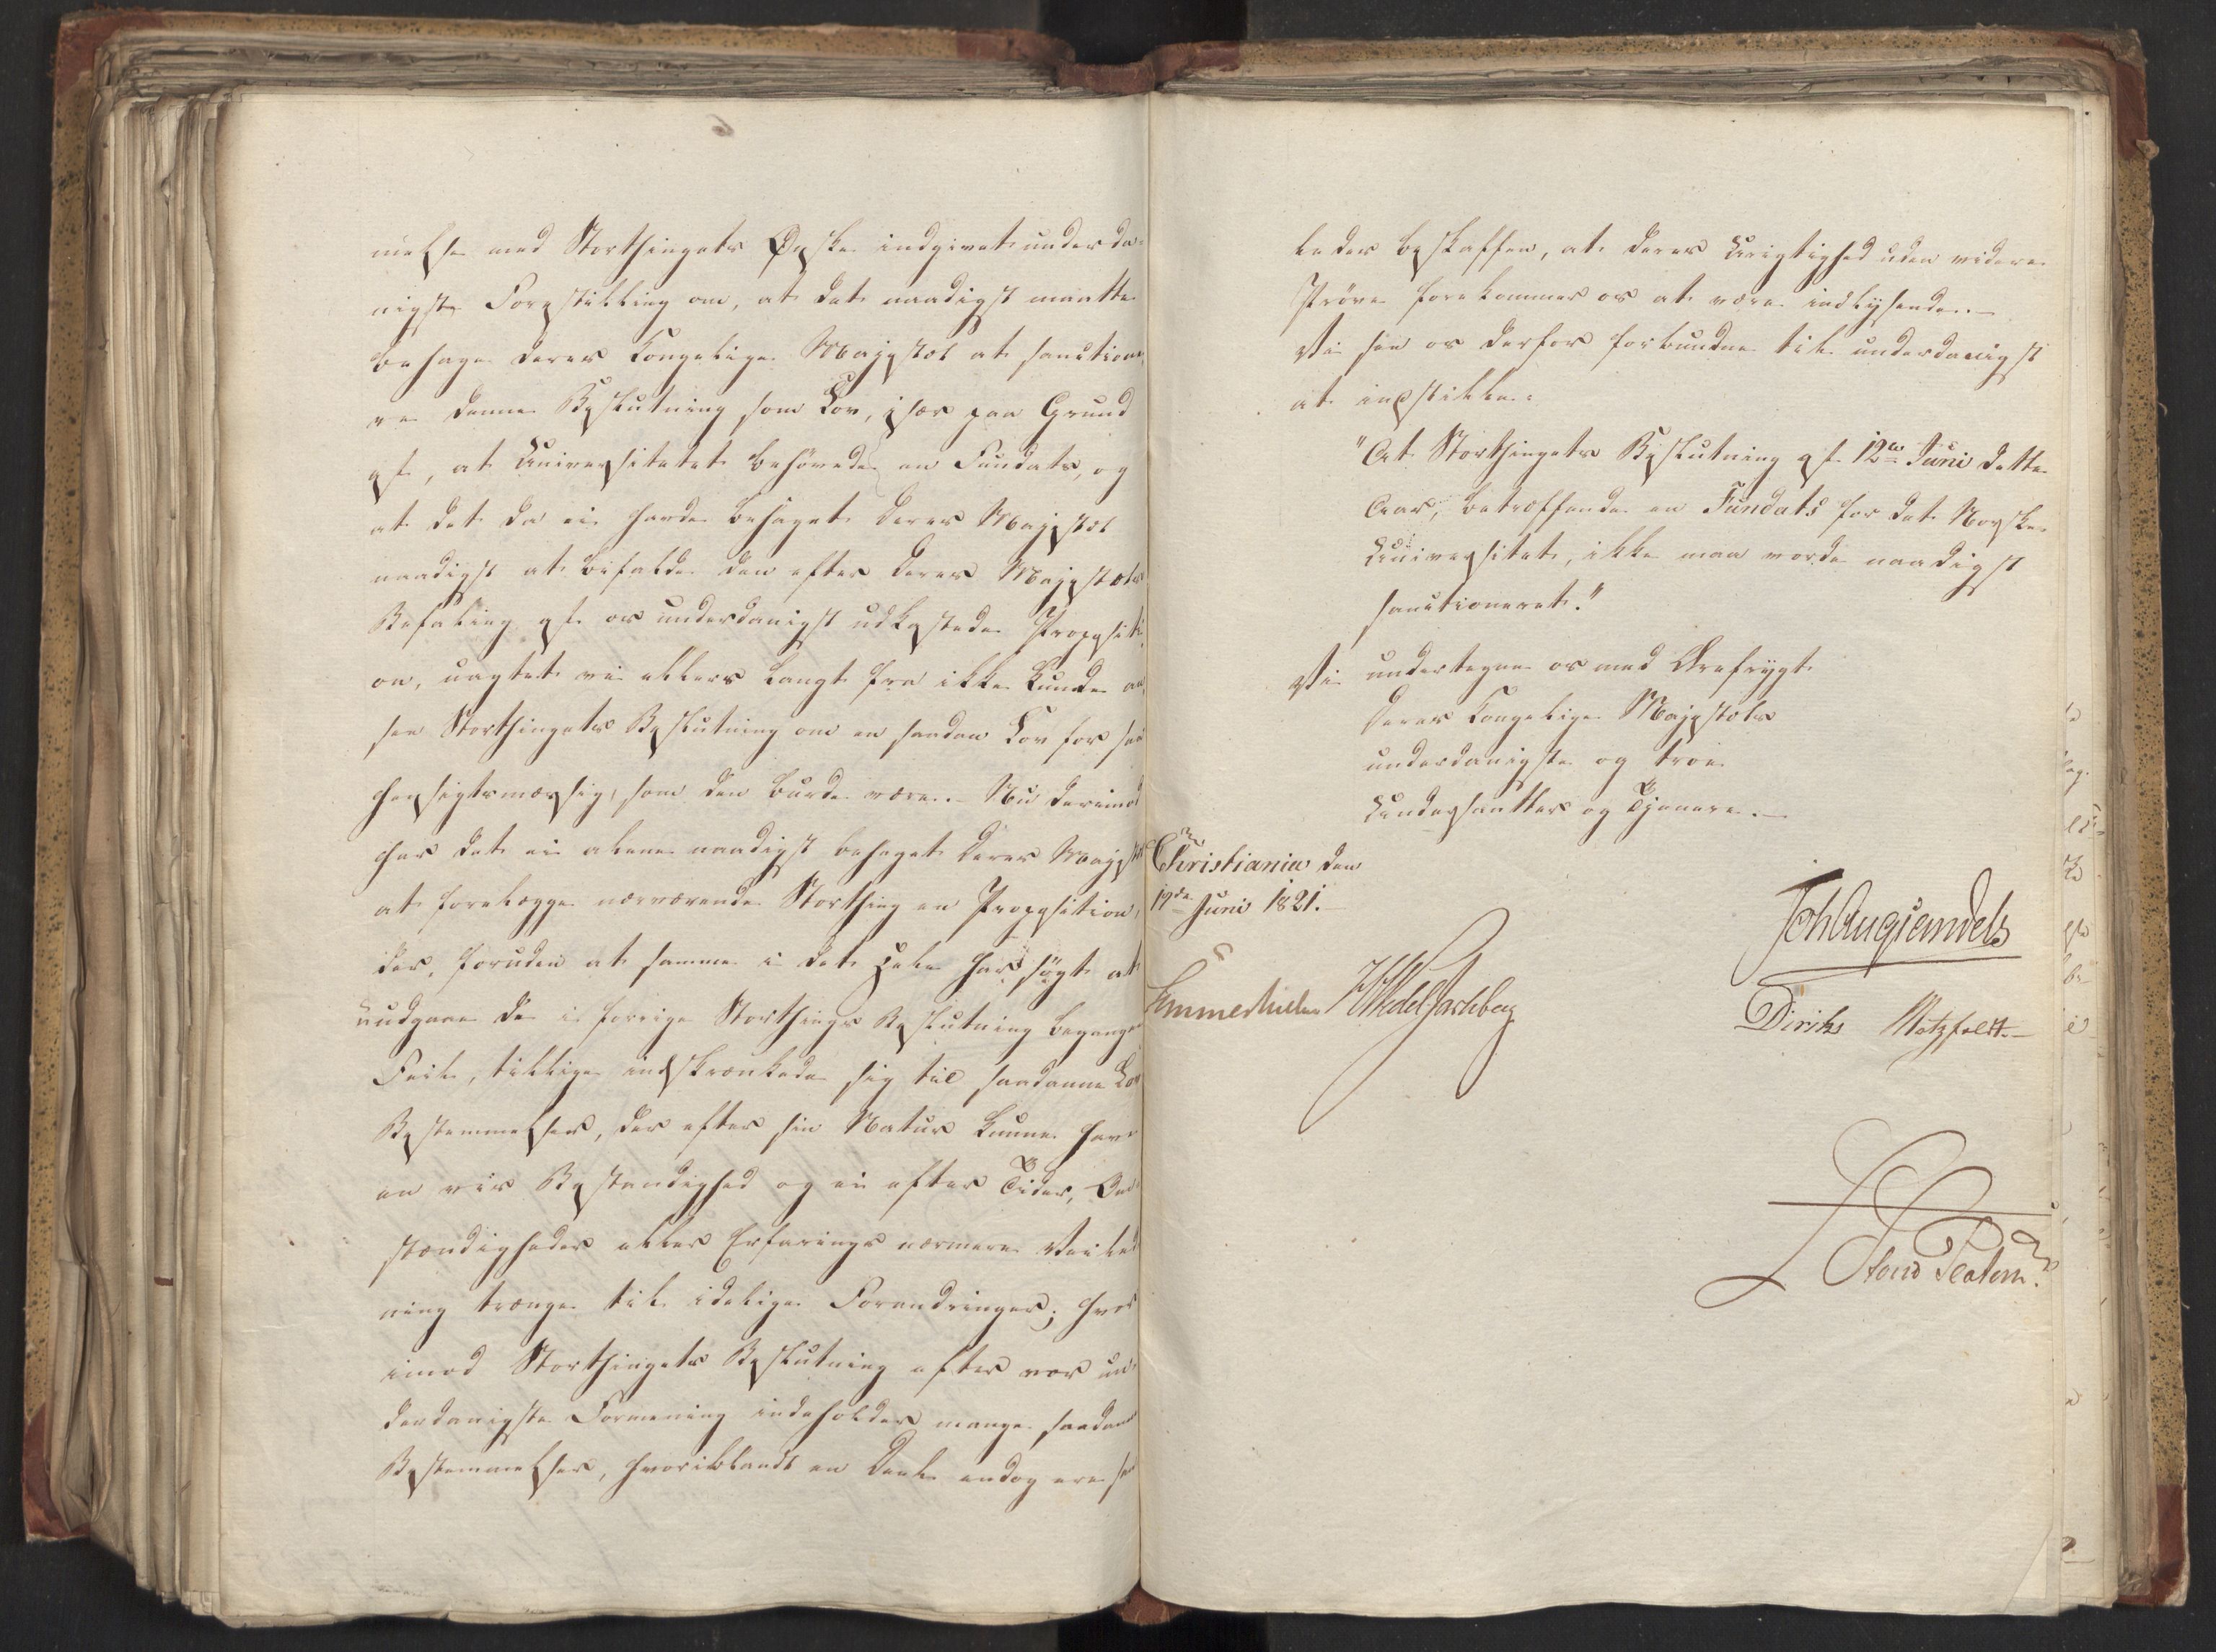 melse med Storthingets Ønske indgivet underda-
nigste Forestilling om, at det naadigst maatte
behage Deres Kongelige Majestæt at sanctione-
re denne Beslutning som Lov, især paa Grund
af, at Universitetet behøvede en Fundats, og
at det da ei havde behaget Deres Majestæt
naadigst at bifalde den efter Deres Majestæts
Befaling af os underdanigst udkastede Propositi-
on, uagtet vi ellers langt fra ikke kunde an-
see Storthingets Beslutning om en saadan Lov for saa
hensigtsmæssig, som den burde være. Nu derimod
har det ei alene naadigst behaget Deres Majestæt
at forelægge nærværende Storthing en Proposition,
der, foruden at samme i det Hele har søgt at
undgaae de i forrige Storthings Beslutning begangne
Feil, tillige indskrænkede sig til saadanne Lov
Bestemmelser, der efter sin Natur kunne have
en vis Bestandighed og ei efter Tider, Om-
stændigheder eller Erfarings nærmere Veiled-
ning trænge til idelige Forandringer; hvor-
imod Storthingets Beslutning efter vor un-
derdanigste Formening indeholder mange saadanne
Bestemmelser, hvoriblandt en Deel endog ere saa-
ledes beskaffen, at deres Urigtighed uden videre
Prøve forekommer os at være indlysende.—
Vi see os derfor forbundne til underdanigst
at indstille:
"At Storthingets Beslutning af 12te Juni dette
Aar, betræffende en Fundats for det Norske
Universitet, ikke maa vorde naadigst
sanctioneret."
Vi undertegne os med Ærefrygt
Deres Kongelige Majestæts
underdanigste og troe
Undersaatter og Tjenere.—
Christiania den
19de Juni 1821.
Joh Aug Sandels
Sommerhielm HWedel Jarlsberg
Diriks Motzfeldt